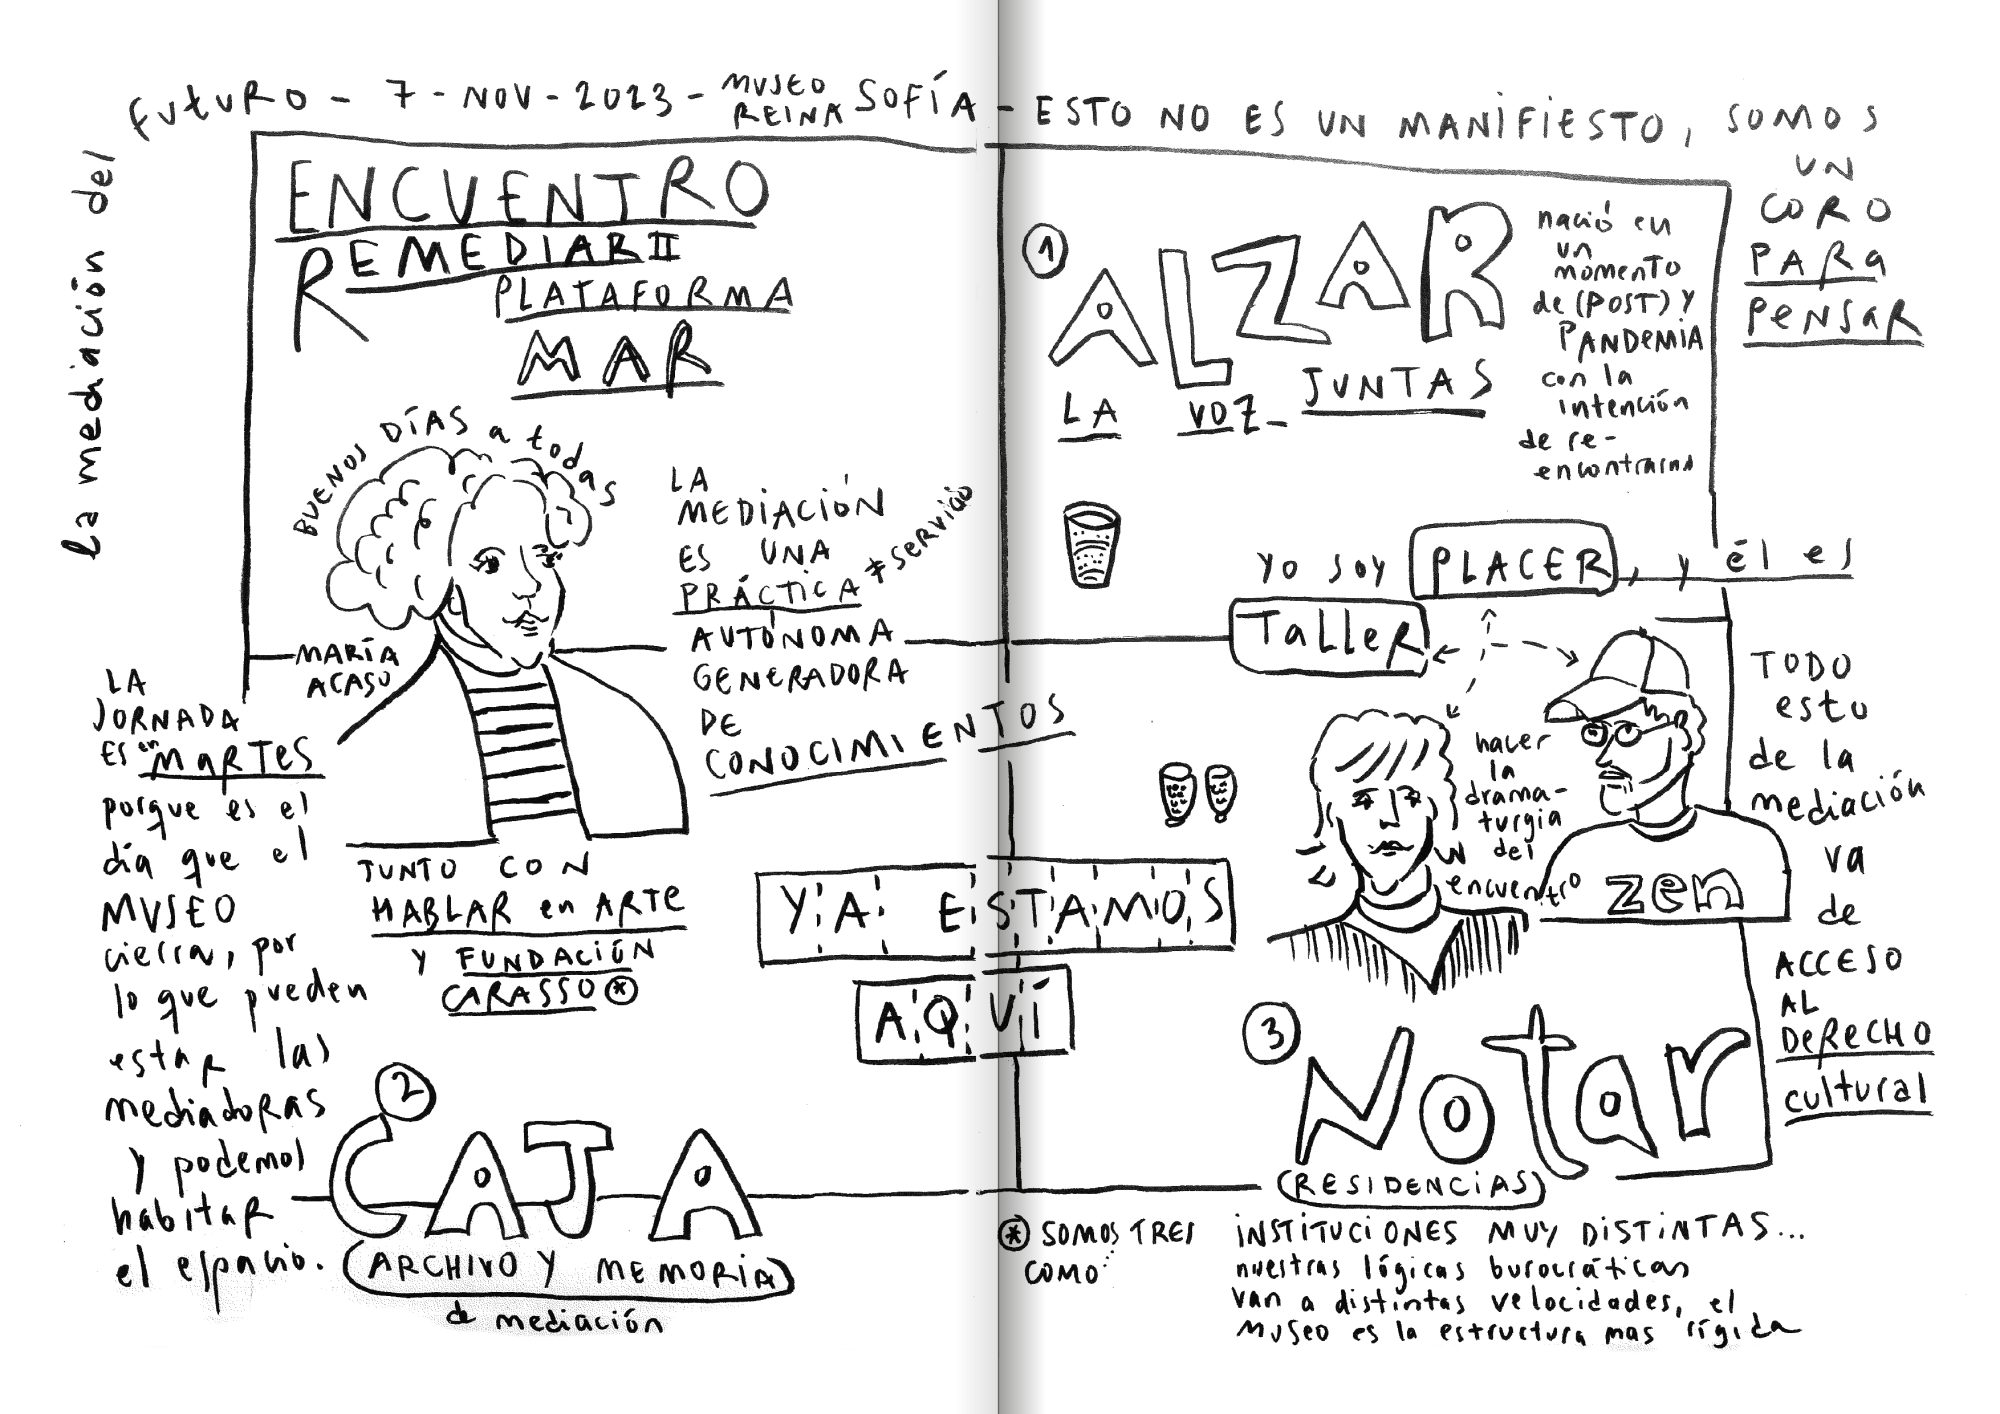 la mediación del
futuro - 7 - NOV - 2023 - MUSEO REINA SOFÍA - ESTO NO ES UN MANIFIESTO, SOMOS
UN
CORO
PARA
PENSAR
ENCUENTRO
REMEDIAR II
PLATAFORMA
MAR
BUENOS DÍAS a todas
MARÍA
ACASO
LA
MEDIACIÓN
ES UNA
PRÁCTICA ≠ SERVICIO
AUTÓNOMA
GENERADORA
DE
CONOCIMIENTOS
LA
JORNADA
ES en MARTES
porque es el
día que el
MUSEO
cierra, por
lo que pueden
estar las
mediadoras
y podemos
habitar
el espacio.
JUNTO CON
HABLAR en ARTE
Y FUNDACIÓN
CARASSO *
2
CAJA
(ARCHIVO Y MEMORIA)
de mediación
YA ESTAMOS
AQUÍ
1
ALZAR
LA VOZ JUNTAS
nació en
un
momento
de (POST) Y
PANDEMIA
con la
intención
de re-
encontrarnos
YO SOY PLACER, y él es
TALLER
hacer
la
drama-
turgia
del
encuentro
zen
TODO
esto
de la
mediación
va
de
ACCESO
AL
DERECHO
cultural
3
Notar
(RESIDENCIAS)
* SOMOS TRES INSTITUCIONES MUY DISTINTAS...
COMO
nuestras lógicas burocráticas
van a distintas velocidades, el
MUSEO es la estructura mas rígida